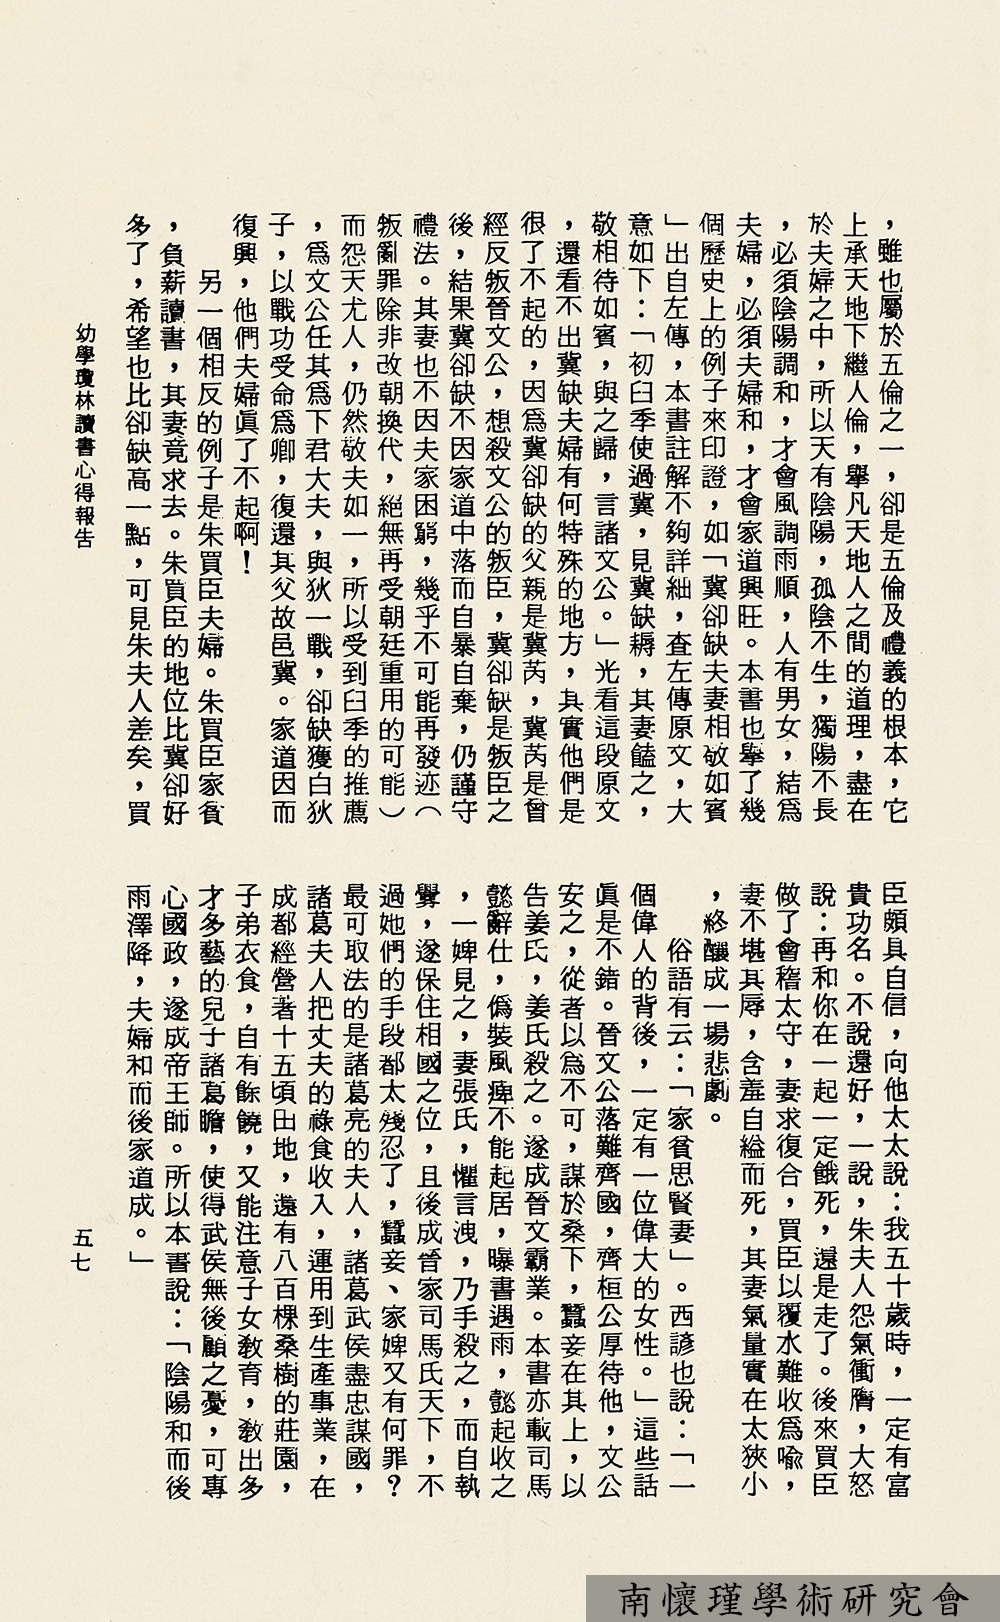 ，雖也屬於五倫之一，卻是五倫及禮義的根本，它
上承天地下繼人倫，舉凡天地人之間的道理，盡在
於夫婦之中，所以天有陰陽，孤陰不生，獨陽不長
，必須陰陽調和，才會風調雨順，人有男女，結爲
夫婦，必須夫婦和，才會家道興旺。本書也舉了幾
個歷史上的例子來印證，如「冀卻缺夫妻相敬如賓
」出自左傳，本書註解不夠詳細，查左傳原文，大
意如下：「初臼季使過冀，見冀缺耨，其妻饁之，
敬相待如賓，與之歸，言諸文公。」光看這段原文
，還看不出冀缺夫婦有何特殊的地方，其實他們是
很了不起的，因爲冀卻缺的父親是冀芮，冀芮是曾
經反叛晉文公，想殺文公的叛臣，冀卻缺是叛臣之
後，結果冀卻缺不因家道中落而自暴自棄，仍謹守
禮法。其妻也不因夫家困窮，幾乎不可能再發迹（
叛亂罪除非改朝換代，絕無再受朝廷重用的可能）
而怨天尤人，仍然敬夫如一，所以受到臼季的推薦
，爲文公任其爲下君大夫，與狄一戰，卻缺獲白狄
子，以戰功受命爲卿，復還其父故邑冀。家道因而
復興，他們夫婦眞了不起啊！
另一個相反的例子是朱買臣夫婦。朱買臣家貧
，負薪讀書，其妻竟求去。朱買臣的地位比冀卻好
多了，希望也比卻缺高一點，可見朱夫人差矣，買
臣頗具自信，向他太太說：我五十歲時，一定有富
貴功名。不說還好，一說，朱夫人怨氣衝膺，大怒
說：再和你在一起一定餓死，還是走了。後來買臣
做了會稽太守，妻求復合，買臣以覆水難收爲喩，
妻不堪其辱，含羞自縊而死，其妻氣量實在太狹小
，終釀成一場悲劇。
俗語有云：「家貧思賢妻」。西諺也說：「一
個偉人的背後，一定有一位偉大的女性。」這些話
眞是不錯。晉文公落難齊國，齊桓公厚待他，文公
安之，從者以爲不可，謀於桑下，蠶妾在其上，以
告姜氏，姜氏殺之。遂成晉文霸業。本書亦載司馬
懿辭仕，僞裝風痺不能起居，曝書遇雨，懿起收之
，一婢見之，妻張氏，懼言洩，乃手殺之，而自執
爨，遂保住相國之位，且後成晉家司馬氏天下，不
過她們的手段都太殘忍了，蠶妾、家婢又有何罪？
最可取法的是諸葛亮的夫人，諸葛武侯盡忠謀國，
諸葛夫人把丈夫的祿食收入，運用到生產事業，在
成都經營著十五頃田地，還有八百棵桑樹的莊園，
子弟衣食，自有餘饒，又能注意子女教育，教出多
才多藝的兒子諸葛瞻，使得武侯無後顧之憂，可專
心國政，遂成帝王師。所以本書說：「陰陽和而後
雨澤降，夫婦和而後家道成。」
幼學瓊林讀書心得報告
五七
南懷瑾學術研究會